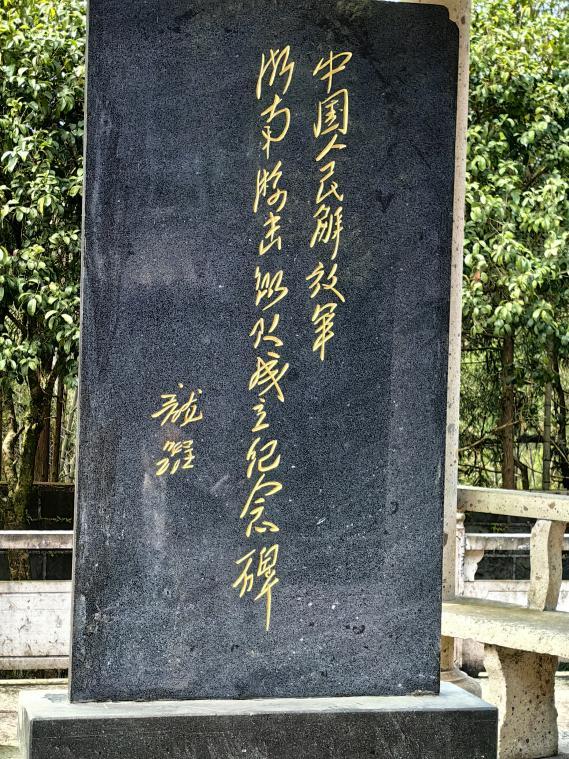 中国人民解放军
浙南游击纵队成立纪念碑
龍躍